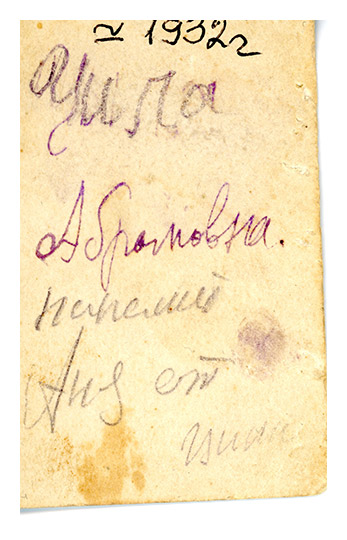 1932г
Циля
Абрамовна.
на память
Ане от